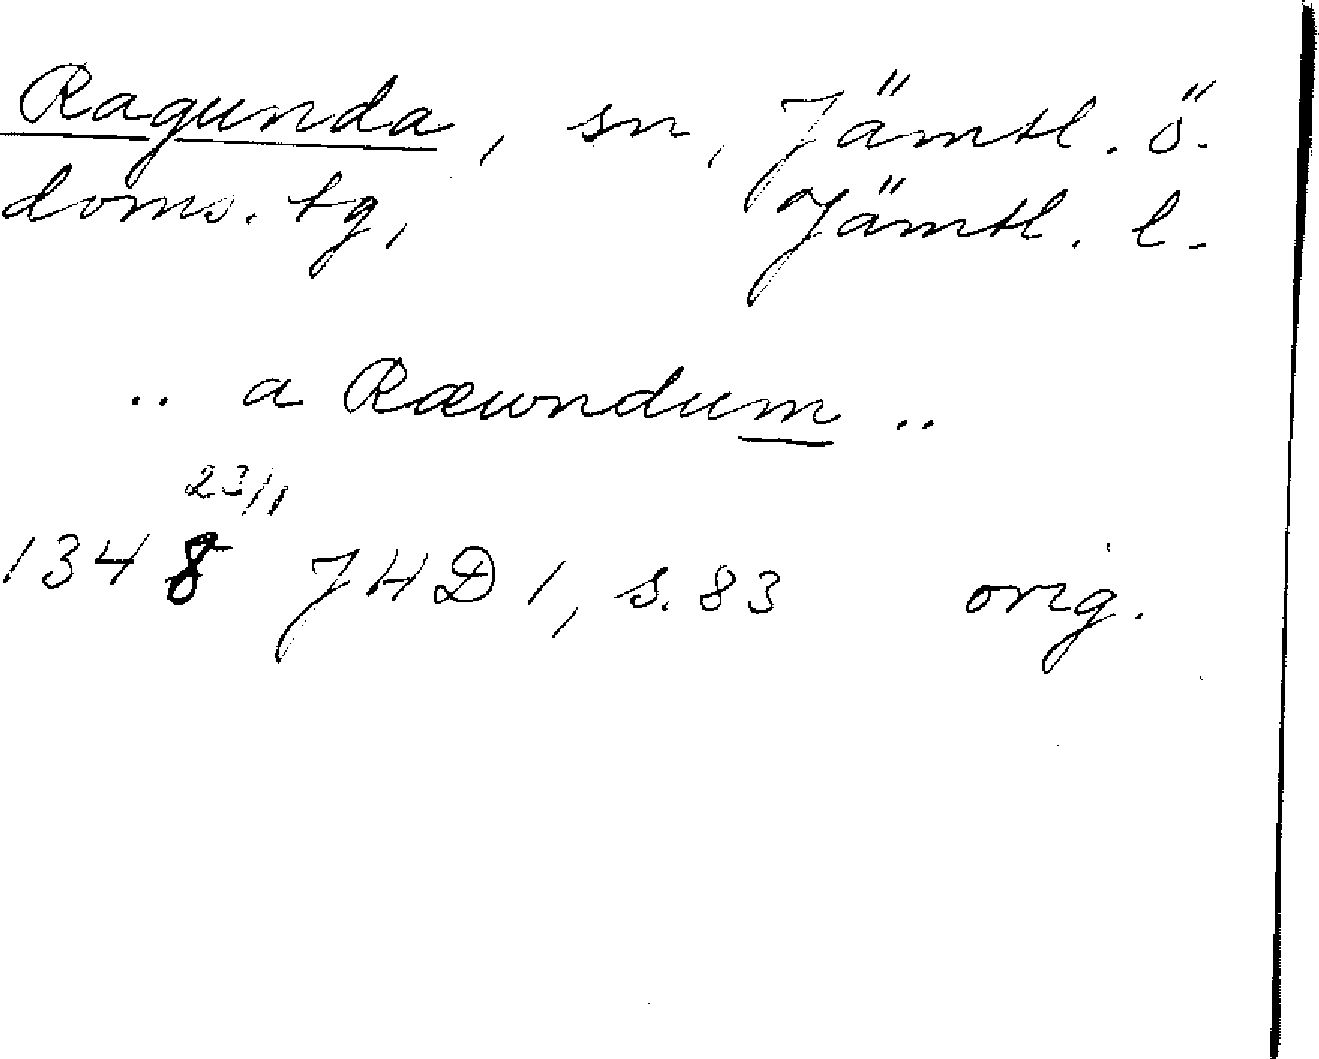 Ragunda, sn, Jämtl. ö.
doms. tg, Jämtl. l.
.. a Ræwndum ..
23/1
1348 JHD 1, s. 83 orig.